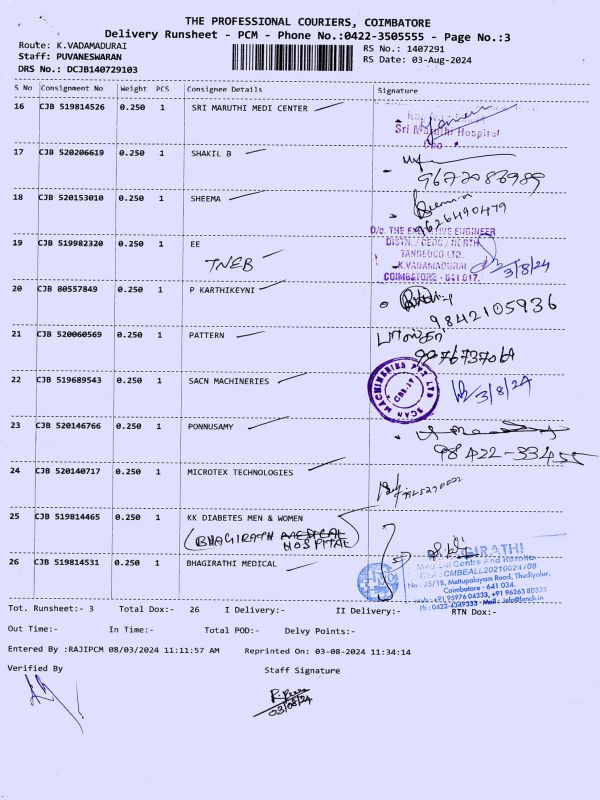 THE PROFESSIONAL COURIERS, COIMBATORE
Delivery Runsheet - PCM - Phone No.:0422-3505555 - Page No.:3
Route: K.VADAMADURAI
Staff: PUVANESWARAN
DRS No.: DCJB140729103
RS No.: 1407291
RS Date: 03-Aug-2024
S No Consignment No Weight PCS Consignee Details Signature
16 CJB 519814526 0.250 1 SRI MARUTHI MEDI CENTER
Sri Maruthi Hospital
17 CJB 520206619 0.250 1 SHAKIL B
9677083989
18 CJB 520153010 0.250 1 SHEEMA
9626490479
19 CJB 519982320 0.250 1 EE
TNEB
O/o. THE EXECUTIVE ENGINEER
DISTN. / DEDC / NORTH
TANGEDCO LTD.
K.VADAMADURAI
COIMBATORE - 641 017.
3/8/24
20 CJB 80557849 0.250 1 P KARTHIKEYNI
9842105936
21 CJB 520060569 0.250 1 PATTERN
9876737069
22 CJB 519689543 0.250 1 SACN MACHINERIES
SCAN MACHINERIES PVT LTD
CBE-17
3/8/24
23 CJB 520146766 0.250 1 PONNUSAMY
98422-33455
24 CJB 520140717 0.250 1 MICROTEX TECHNOLOGIES
25 CJB 519814465 0.250 1 KK DIABETES MEN & WOMEN
(BHAGIRATH MEDICAL
HOSPITAL)
26 CJB 519814531 0.250 1 BHAGIRATHI MEDICAL
BHAGIRATHI
Medical Centre And Hospital
CEA: CMBEALL20210024108
No : 35/1B, Mettupalayam Road, Thudiyalur,
Coimbatore - 641 034.
Mob : +91 95976 04333, +91 96263 80333
Ph : 0422-4349333 Mail : info@bmch.in
Tot. Runsheet:- 3 Total Dox:- 26 I Delivery:- II Delivery:- RTN Dox:-
Out Time:- In Time:- Total POD:- Delvy Points:-
Entered By :RAJIPCM 08/03/2024 11:11:57 AM Reprinted On: 03-08-2024 11:34:14
Verified By Staff Signature
03/08/24